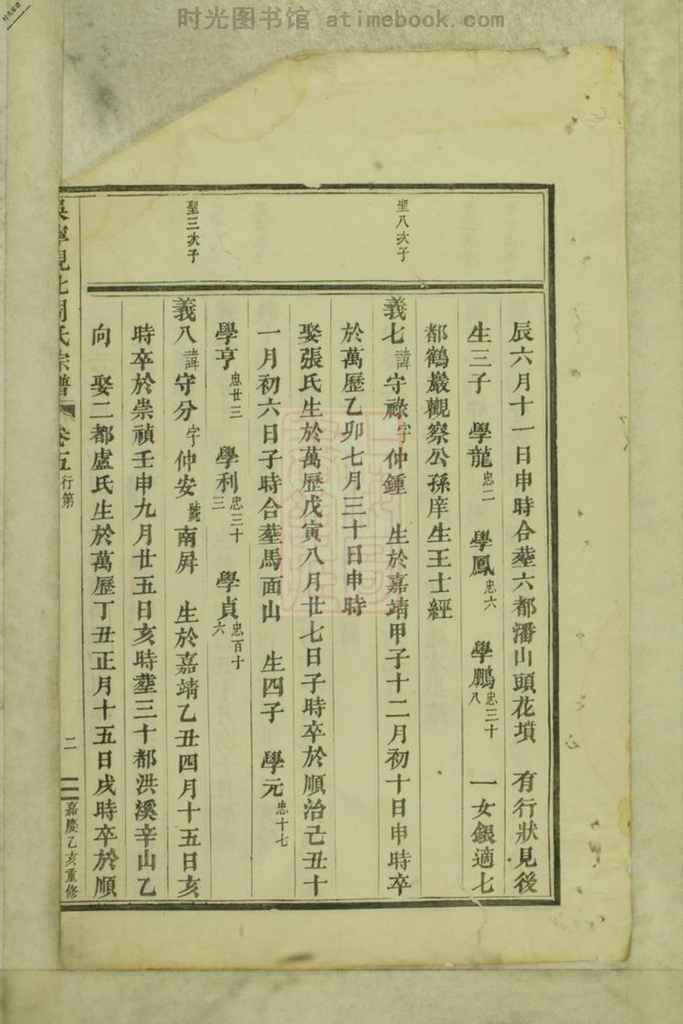 时光图书馆 atimebook.com
辰六月十一日申時合塟六都潘山頭花墳 有行狀見後
生三子 學龍忠二 學鳳忠六 學鵬忠三十八 一女銀適七
都鶴巖觀察公孫庠生王士經
聖八次子
義七諱守祿字仲鍾 生於嘉靖甲子十二月初十日申時卒
於萬歷乙卯七月三十日申時
娶張氏生於萬歷戊寅八月廿七日子時卒於順治己丑十
一月初六日子時合塟馬面山 生四子 學元忠十七
學亨忠廿三 學利忠三十三 學貞忠百十六
聖三次子
義八諱守分字仲安號南屏 生於嘉靖乙丑四月十五日亥
時卒於崇禎壬申九月廿五日亥時塟三十都洪溪辛山乙
向 娶二都盧氏生於萬歷丁丑正月十五日戌時卒於順
吳寧峴北周氏宗譜 卷五行第 二 嘉慶乙亥重修